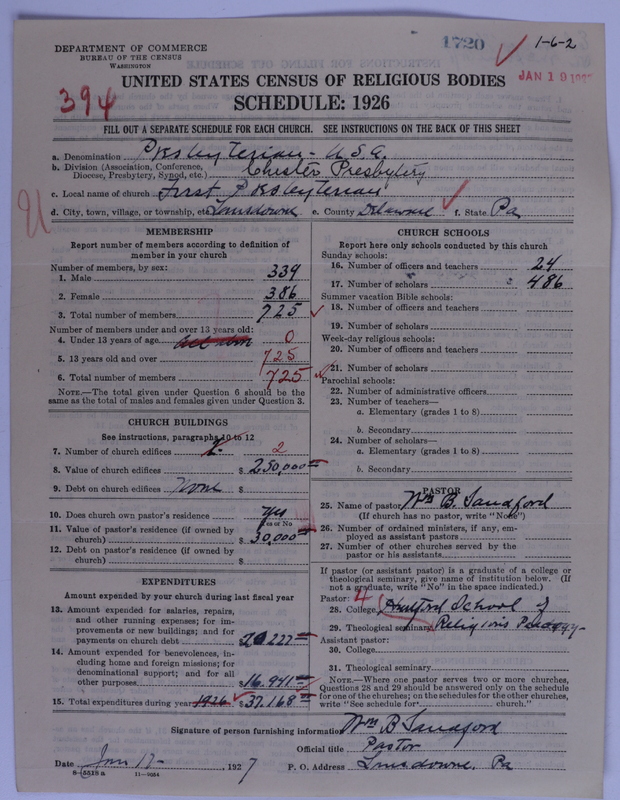 1720
1-6-2
DEPARTMENT OF COMMERCE
BUREAU OF THE CENSUS
WASHINGTON
JAN 19 192
394
UNITED STATES CENSUS OF RELIGIOUS BODIES
SCHEDULE: 1926
FILL OUT A SEPARATE SCHEDULE FOR EACH CHURCH. SEE INSTRUCTIONS ON THE BACK OF THIS SHEET
a. Denomination Presbyterian - U.S.A.
b. Division (Association, Conference, Diocese, Presbytery, Synod, etc.) Chester Presbytery
c. Local name of church First Presbyterian
d. City, town, village, or township, etc. Lansdowne e. County Delaware f. State Pa
MEMBERSHIP
Report number of members according to definition of
member in your church
Number of members, by sex:
1. Male 339
2. Female 386
3. Total number of members 725
Number of members under and over 13 years old:
4. Under 13 years of age 0
5. 13 years old and over 725
6. Total number of members 725
NOTE.—The total given under Question 6 should be
same as the total of males and females given under Question 3.
CHURCH BUILDINGS
See instructions, paragraphs 10 to 12
7. Number of church edifices 2 2
8. Value of church edifices $ 250,000
9. Debt on church edifices None $
10. Does church own pastor's residence Yes
Yes or No
11. Value of pastor's residence (if owned by
church) $ 30,000
12. Debt on pastor's residence (if owned by
church) $
EXPENDITURES
Amount expended by your church during last fiscal year
13. Amount expended for salaries, repairs,
and other running expenses; for im-
provements or new buildings; and for
payments on church debt 20 227
14. Amount expended for benevolences, in-
cluding home and foreign missions; for
denominational support; and for all
other purposes $ 16.941
15. Total expenditures during year 1926 $ 37.168
CHURCH SCHOOLS
Report here only schools conducted by this church
Sunday schools:
16. Number of officers and teachers 24
17. Number of scholars 486
Summer vacation Bible schools:
18. Number of officers and teachers
19. Number of scholars
Week-day religious schools:
20. Number of officers and teachers
21. Number of scholars
Parochial schools:
22. Number of administrative officers
23. Number of teachers—
a. Elementary (grades 1 to 8)
b. Secondary
24. Number of scholars—
a. Elementary (grades 1 to 8)
b. Secondary
PASTOR
25. Name of pastor Wm B. Sandford
(If church has no pastor, write "None")
26. Number of ordained ministers, if any, em-
ployed as assistant pastors
27. Number of other churches served by the
pastor or his assistants
If pastor (or assistant pastor) is a graduate of a college or
theological seminary, give name of institution below. (If
not a graduate, write "No" in the space indicated.)
Pastor: 4
28. College Hartford School of
29. Theological seminary Religious Pedagogy-
Assistant pastor:
30. College
31. Theological seminary
NOTE.—Where one pastor serves two or more churches,
Questions 28 and 29 should be answered only on the schedule
for one of the churches; on the schedules for the other churches,
write "See schedule for church."
Signature of person furnishing information Wm B Sandford
Official title Pastor
Date Jan 17- , 1927 P. O. Address Lansdowne, Pa
8-5518 a 11-9054